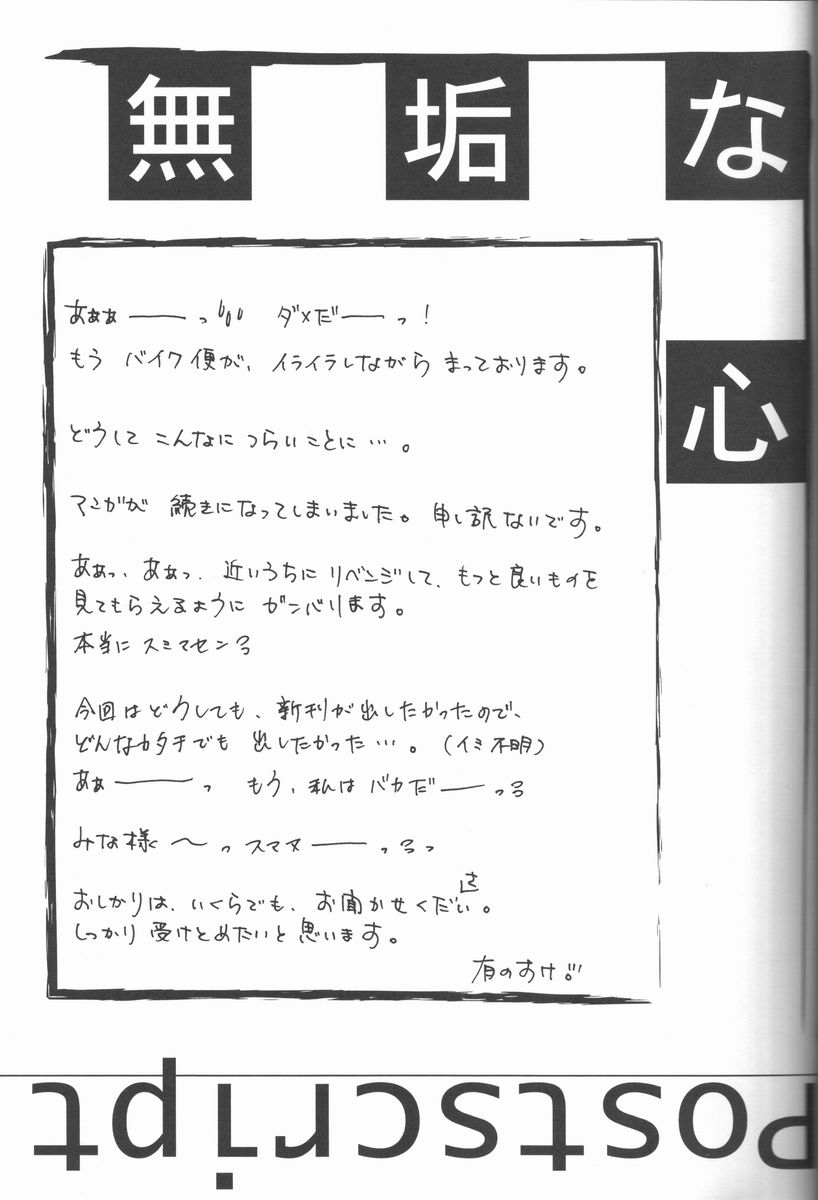 無垢な
心
あぁぁ――っ!!! ダメだ――っ!
もう バイク便が、イライラしながら まっております。
どうして こんなに つらいことに…。
マンガが 続きになってしまいました。申し訳ないです。
あぁっ、あぁっ、近いうちに リベンジして、もっと良いものを
見てもらえるように ガンバリます。
本当に スミマセンう
今回は どうしても、新刊が出したかったので、
どんなカタチでも 出したかった…。(イミ不明)
あぁ――っ もう、私は バカだ――っう
みな様〜っ スマヌ――っうっ
おしかりは、いくらでも、お聞かせください。
しっかり 受けとめたいと 思います。
有のすけ!!!
Postscript